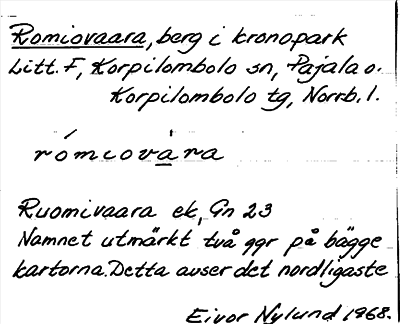 Romiovaara, berg i kronopark
Litt. F, Korpilombolo sn, Pajala o.
Korpilombolo tg, Norrb. l.
rómiovàra
Ruomivaara ek, Gn 23
Namnet utmärkt två ggr på bägge
kartorna. Detta avser det nordligaste
Eivor Nylund 1968.